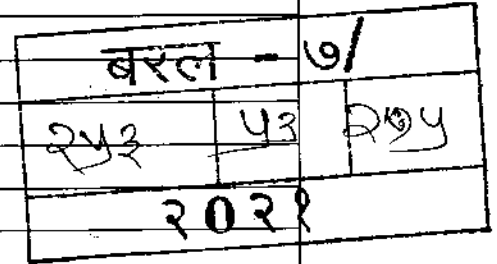 बरल - ७/
२५३ ५३ २७५
२०२१